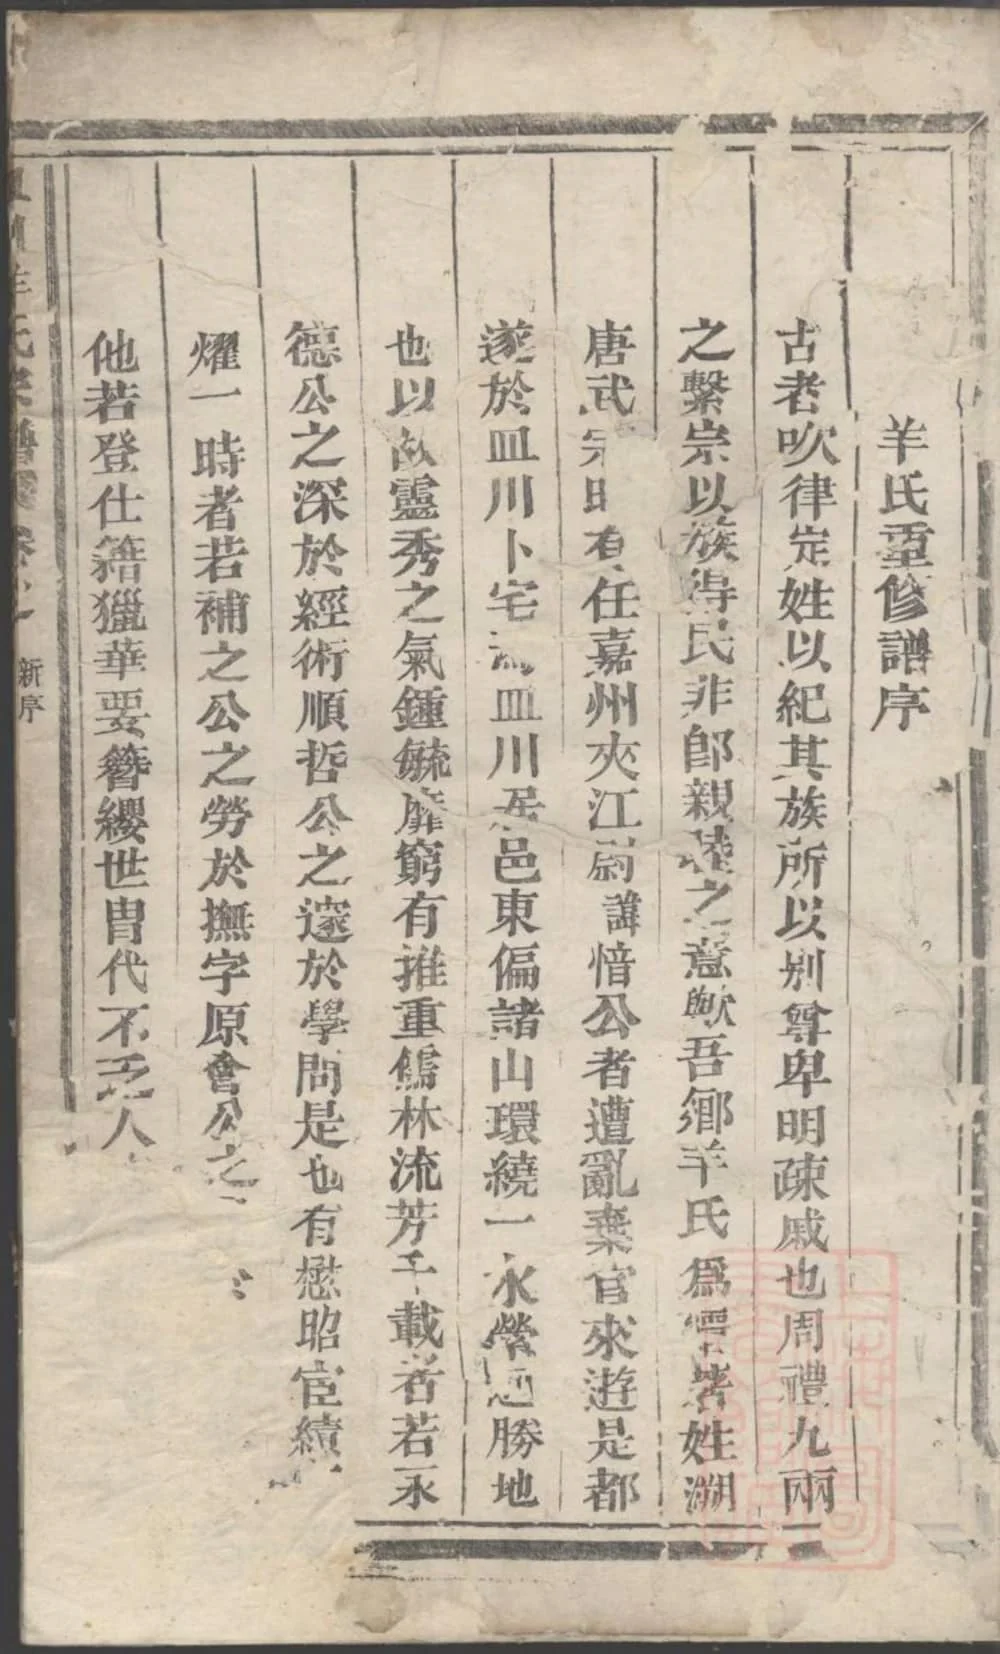 羊氏重修譜序
古者吹律定姓以紀其族所以别尊卑明疎戚也周禮九兩
之繫宗以族得民非卽親睦之意歟吾鄉羊氏爲著姓溯
唐武宗時有任嘉州夾江尉諱愔公者遭亂棄官來遊是都
遂於皿川卜宅焉皿川居邑東偏諸山環繞一水縈迴勝地
也以故靈秀之氣鍾毓靡窮有推重儒林流芳千載者若永
德公之深於經術順哲公之邃於學問是也有懋昭宦績
燿一時者若補之公之勞於撫字原會公之
他若登仕籍獵華要簪纓世胄代不乏人
羊氏宗譜
新序